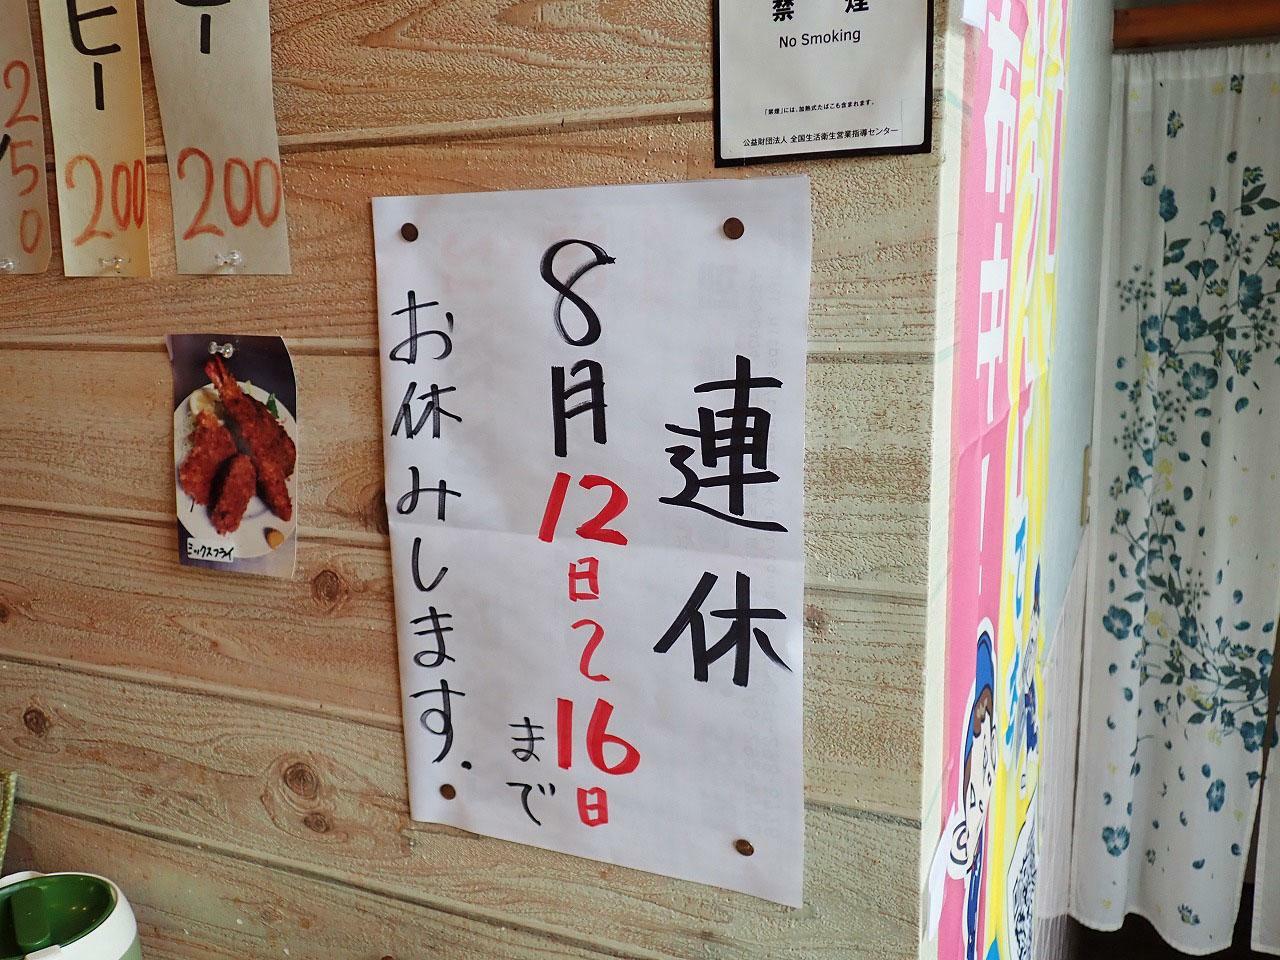 連休
8月12日〜16日まで
お休みします.
禁煙
No Smoking
「禁煙」には、加熱式たばこも含まれます。
公益財団法人 全国生活衛生営業指導センター
ヒー
200
ー
200
250
ミックスフライ